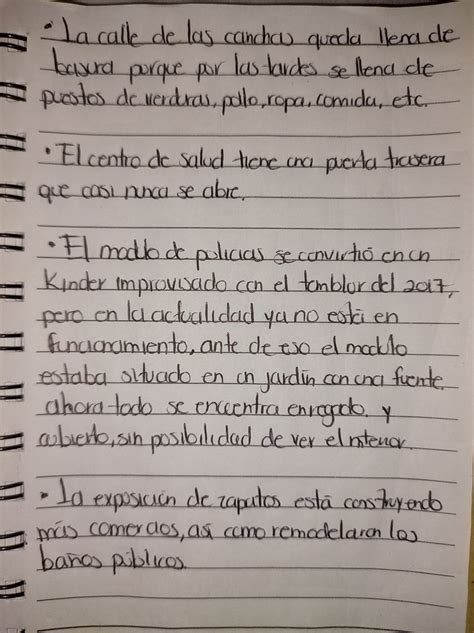 • La calle de las canchas queda llena de
basura porque por las tardes se llena de
puestos de verduras, pollo, ropa, comida, etc.
• El centro de salud tiene una puerta trasera
que casi nunca se abre.
• El modulo de policias se convirtió en un
Kinder improvisado con el temblor del 2017,
pero en la actualidad ya no está en
funcionamiento, ante de eso el modulo
estaba situado en un jardín con una fuente.
ahora todo se encuentra enrejado. y
cubierto, sin posibilidad de ver el interior.
• La exposición de zapatos está construyendo
más comercios, asi como remodelaron los
baños públicos.